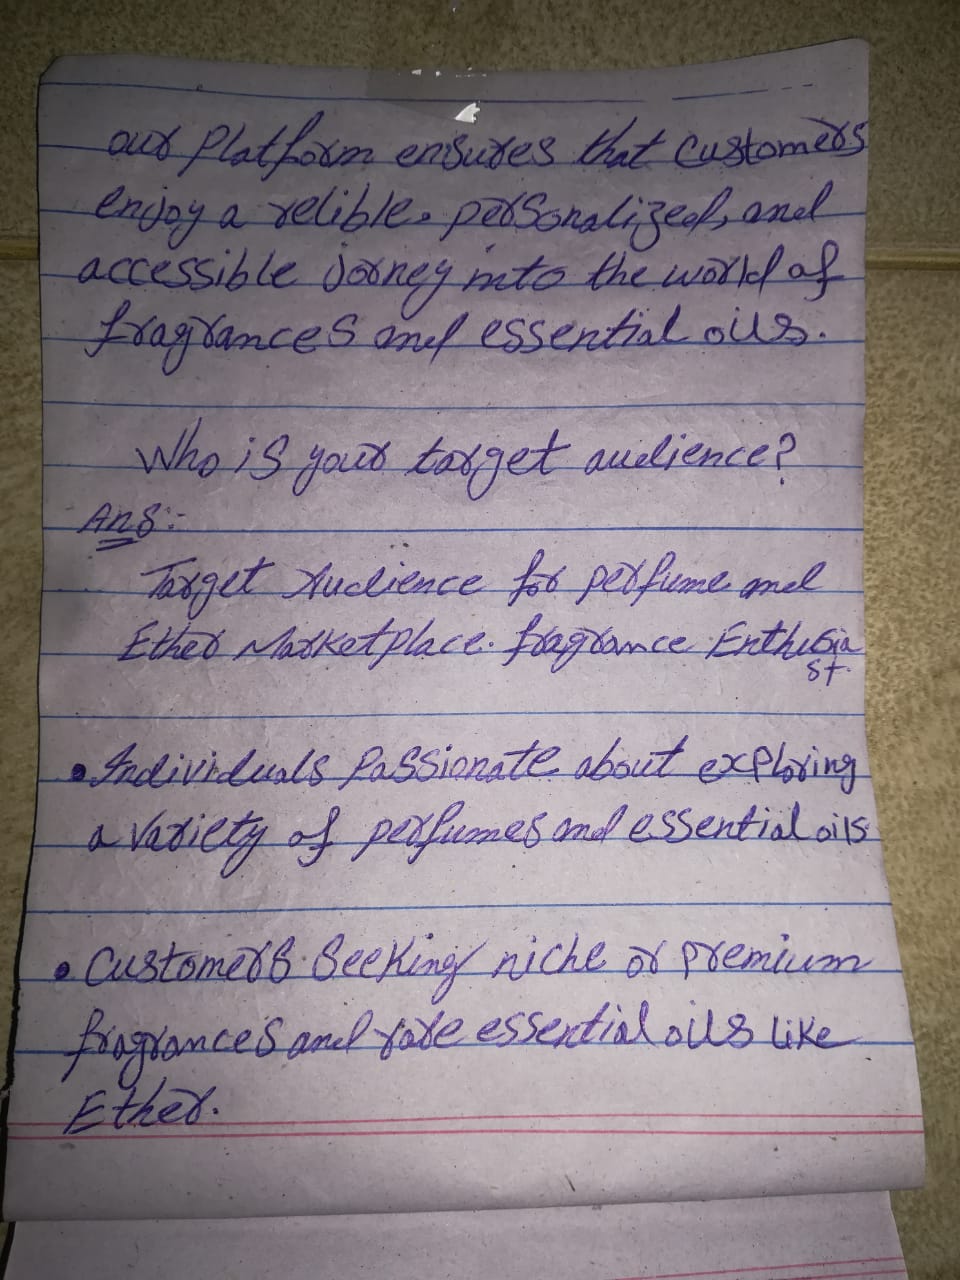 our Platform ensures that customers
enjoy a relible, personalized, and
accessible Jorney into the world of
fragrances and essential oils.
Who is your target audience?
Ans:-
Target Audience for perfume and
Ether Marketplace. fragrance Enthusia
st.
• Individuals Passionate about exploring
a Variety of perfumes and essential oils
• Customers Seeking niche or premium
fragrances and rare essential oils like
Ether.